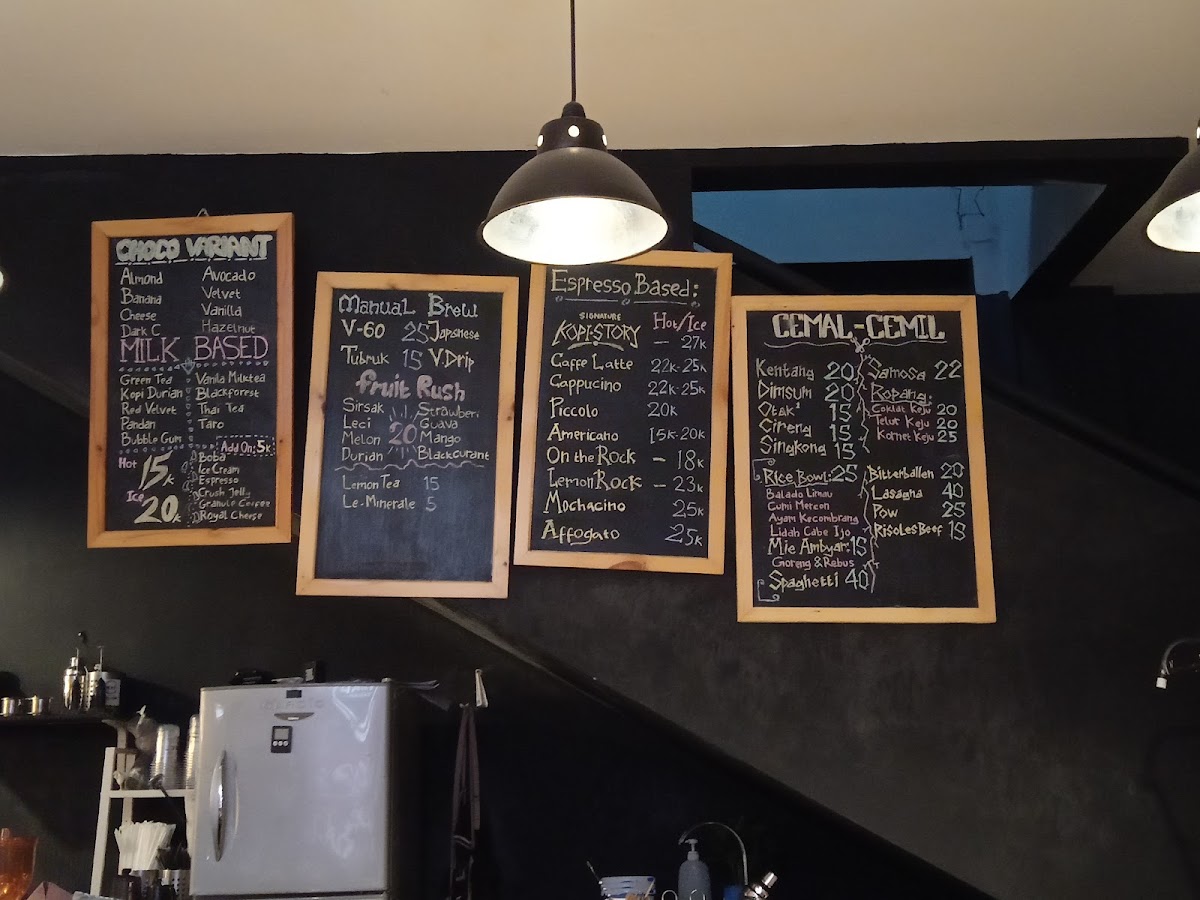 CHOCO VARIANT
Almond Avocado
Banana Velvet
Cheese Vanilla
Dark C Hazelnut
MILK BASED
Green Tea Vanila Milktea
Kopi Durian Blackforest
Red Velvet Thai Tea
Pandan Taro
Bubble Gum
Add On: 5K
Hot 15K
Ice 20K
Boba
Ice Cream
Espresso
Crush Jelly
Granule Coffee
Royal Cheese
Manual Brew
V-60 25 Japanese
Tubruk 15 V.Drip
Fruit Rush
Sirsak Strawberi
Leci Guava
Melon 20 Mango
Durian Blackcurant
Lemon Tea 15
Le-Minerale 5
Espresso Based:
SIGNATURE Hot/Ice
KOPI-STORY - 27K
Caffe Latte 22K-25K
Cappucino 22K-25K
Piccolo 20K
Americano 15K-20K
On the Rock - 18K
Lemon Rock - 23K
Mochacino 25K
Affogato 25K
CEMAL-CEMIL
Kentang 20
Dimsum 20
Otak² 15
Cireng 15
Singkong 15
Samosa 22
Ropang:
Coklat Keju 20
Telur Keju 20
Kornet Keju 25
Rice Bowl: 25
Balado Limau
Cumi Mercon
Ayam Kecombrang
Lidah Cabe Ijo
Mie Ambyar: 15
Goreng & Rebus
Spaghetti 40
Bitterballen 20
Lasagna 40
Pow 25
Risoles Beef 15